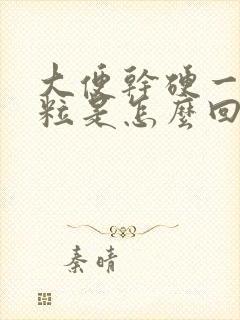 大便幹硬一
粒是怎麼回
秦晴